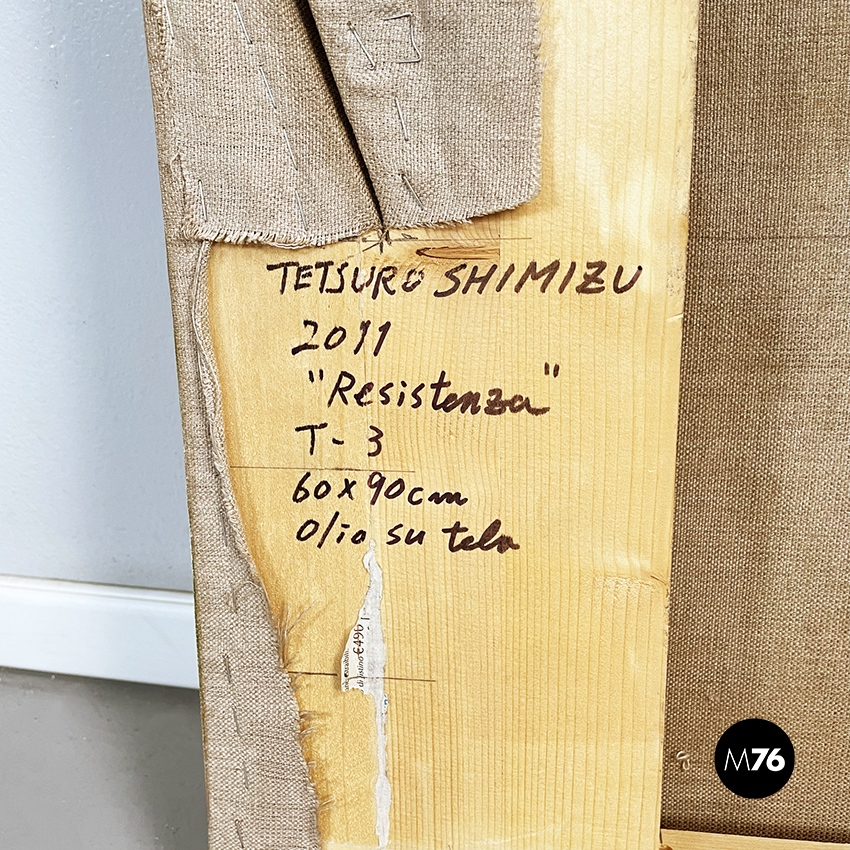 TETSURO SHIMIZU
2011
"Resistenza"
T-3
60x90cm
Olio su tela
€49
M76